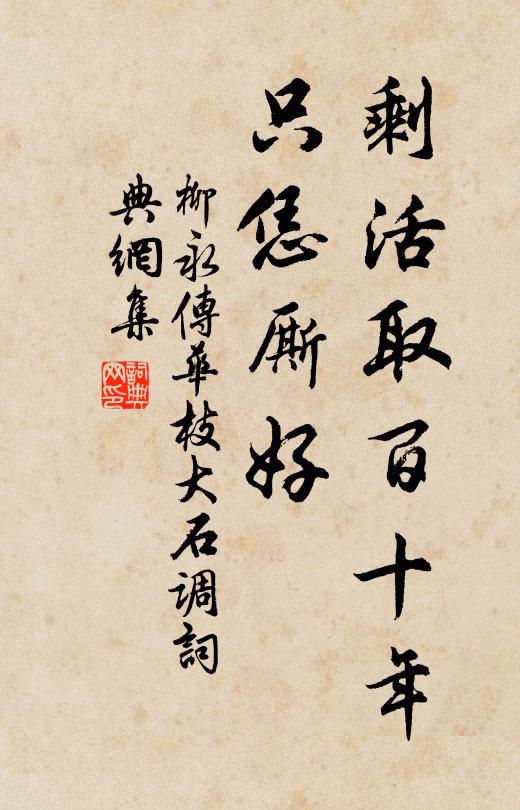 剩活取百十年
只恁厮好
柳永傳華枝大石調詞
典網集
詞典网印